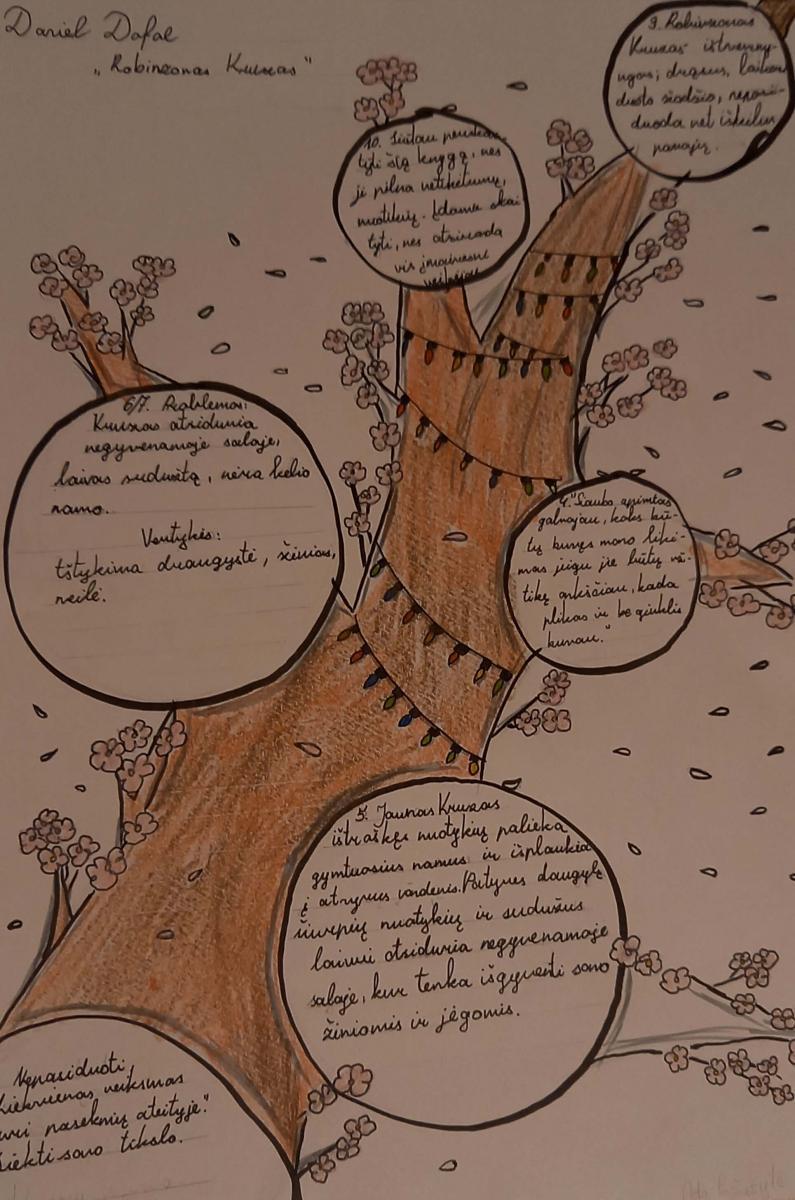 Daniel Dafae
„Robinzonas Kruzas"
9. Robinzonas
Kruzas ištvermin-
gas, drąsus, laikosi
duoto žodžio, nepasi-
duoda net iškilus
pavojų.
10. Siūlau perskai-
tyti šią knygą, nes
ji pilna netikėtumų,
nuotykių. Įdomu skai
tyti, nes atsiranda
vis įmanesni
veikėjai
6/7. Problemos:
Kruzas atsiduria
negyvenamoje saloje,
laivas sudužtą, nėra kelio
namo.
Vertybės:
Ištykima draugystė, žinios,
meilė.
4. "Siaubo apimtas
galvojau, koks bū-
tų buvęs mano liki-
mas jeigu jie būtų už-
tikę anksčiau, kada
plikas ir be ginklo
buvau."
5. Jaunas Kruzas
ištroškęs nuotykių palieka
gymtuosius namus ir išplaukia
į atvyrus vandenis. Patyręs daugybę
šiurpių nuotykių ir sudužus
laivui atsiduria negyvenamoje
saloje, kur tenka išgyventi savo
žiniomis ir jėgomis.
Nepasiduoti,
kiekvienas veiksmas
turi pasekmių ateityje."
siekti savo tikslo.